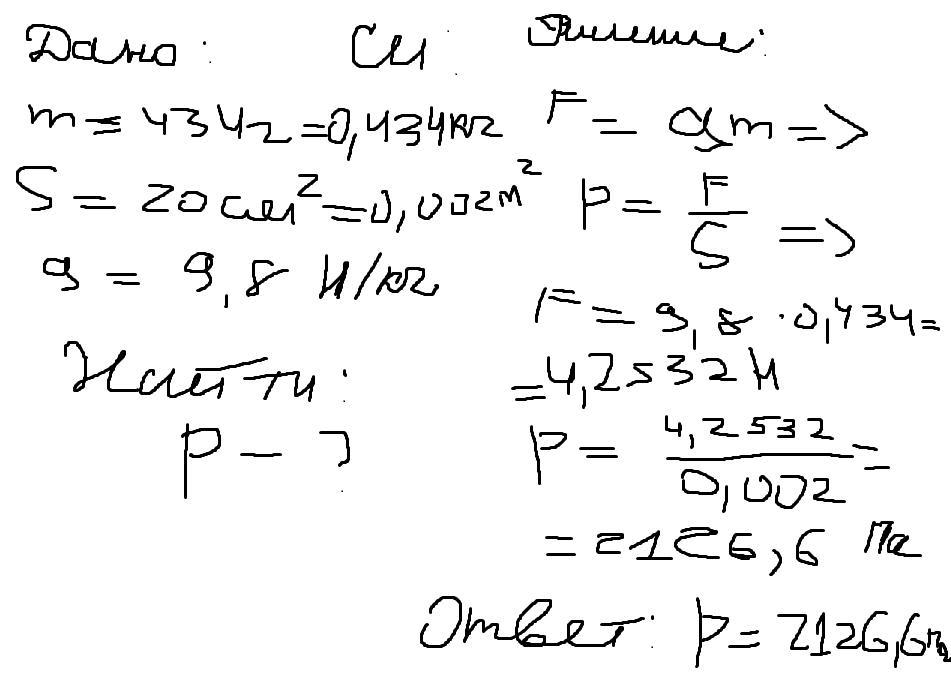 Дано: Си Решение:
m = 434г = 0,434кг F = gm =>
S = 20 см² = 0,002м² P = F/S =>
g = 9,8 Н/кг
F = 9,8 · 0,434 =
Найти: = 4,2532 Н
P - ? P = 4,2532/0,002 =
= 2126,6 Па
Ответ: P = 2126,6Па